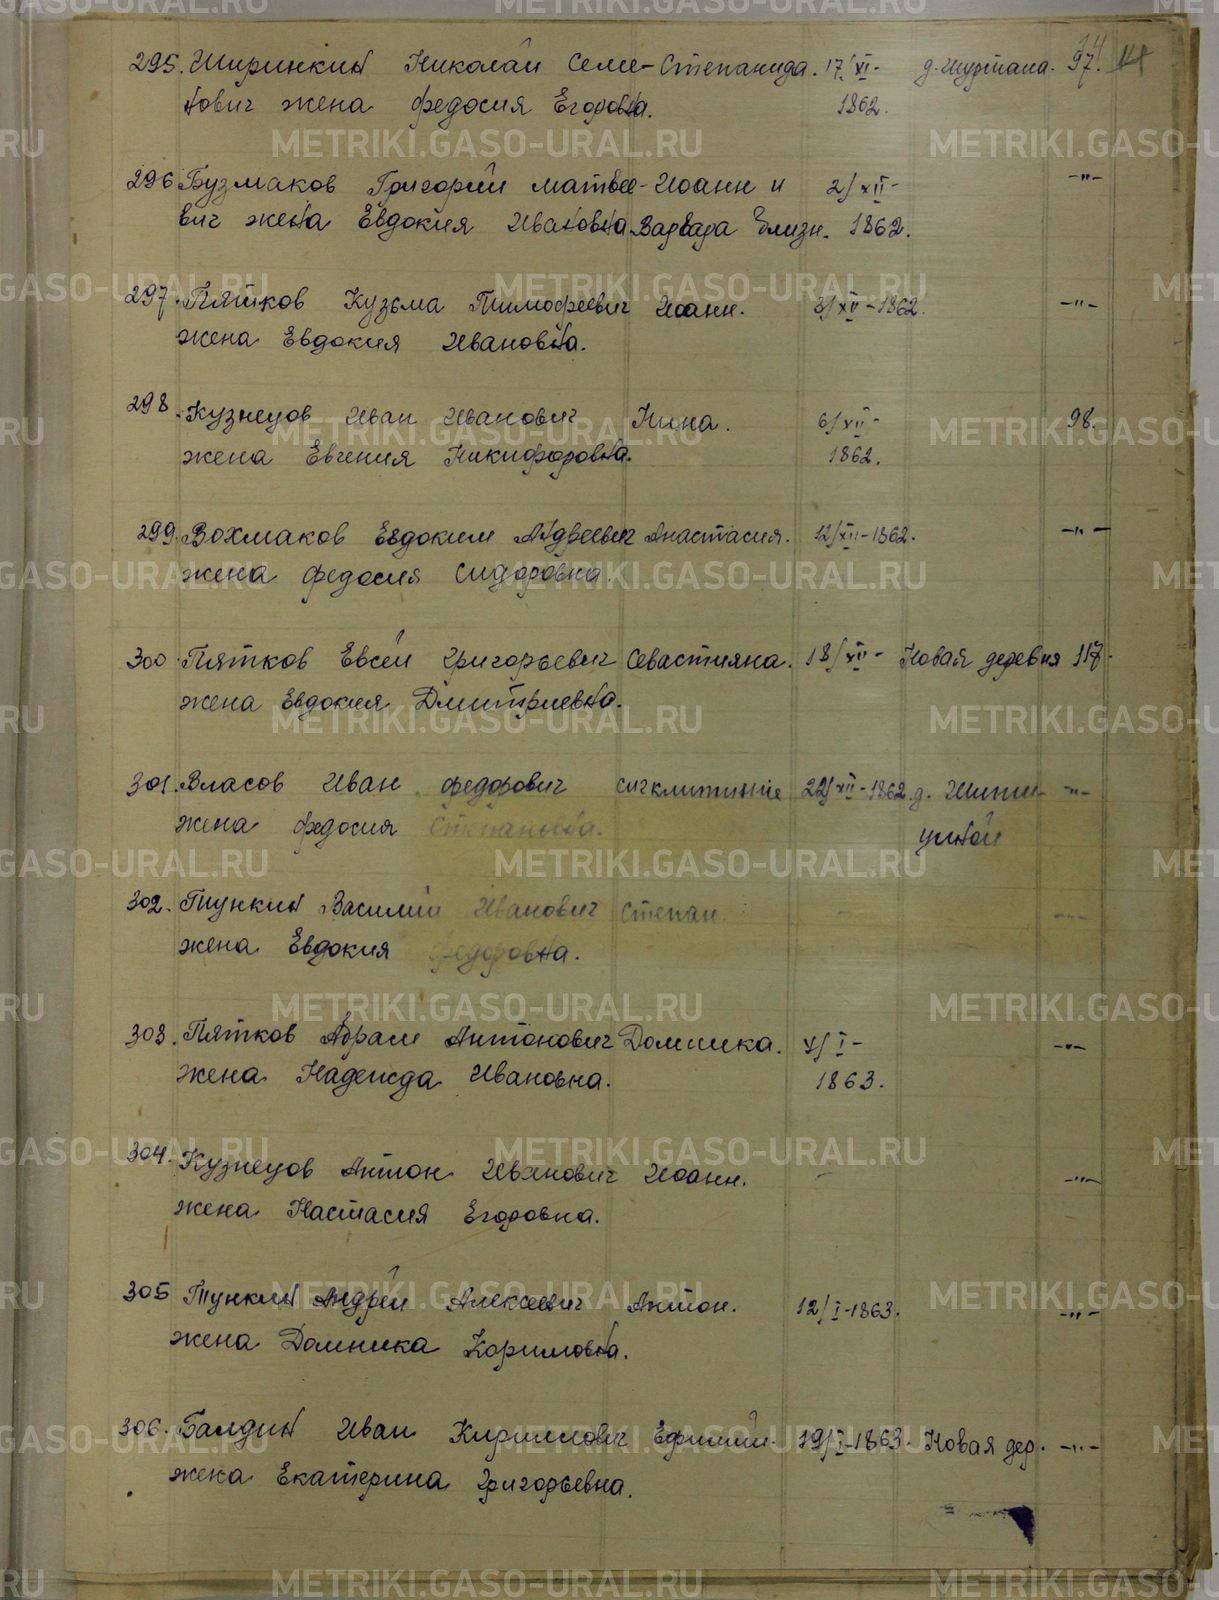 295. Ширинкин Николай Семе- Степанида. 17/XI- д. Шуртана. 97.
нович жена Федосия Егоровна. 1862.
296 Бузмаков Григорий Матвее- Иоанн и 2/XII- -"-
вич жена Евдокия Ивановна Варвара близн. 1862.
297. Пятков Кузьма Тимофеевич Иоанн. 3/XII-1862. -"-
жена Евдокия Ивановна.
298. Кузнецов Иван Иванович Нина. 6/XII- 98.
жена Евгения Никифоровна. 1862.
299. Вохмаков Евдоким Андреевич Анастасия. 12/XII-1862. -"-
жена Федосия Сидоровна.
300. Пятков Евсей Григорьевич Севастияна. 18/XII- Новая деревня
жена Евдокия Дмитриевна.
301. Власов Иван Федорович 22/XII-1862. д. Шипи- -"-
жена Федосия Степановна. цыной
302. Тункин Василий Иванович Степан - -"-
жена Евдокия Федоровна.
303. Пятков Абрам Антонович Домника. I- -"-
жена Надежда Ивановна. 1863.
304. Кузнецов Антон Иванович Иоанн. - -"-
жена Настасия Егоровна.
305 Тункин Андрей Алексеевич Антон. 12/I-1863. -"-
жена Домника Кориловна.
306. Балдин Иван Кириллович Ефимий. 19/I-1863. Новая дер. -"-
жена Екатерина Григорьевна.
METRIKI.GASO-URAL.RU